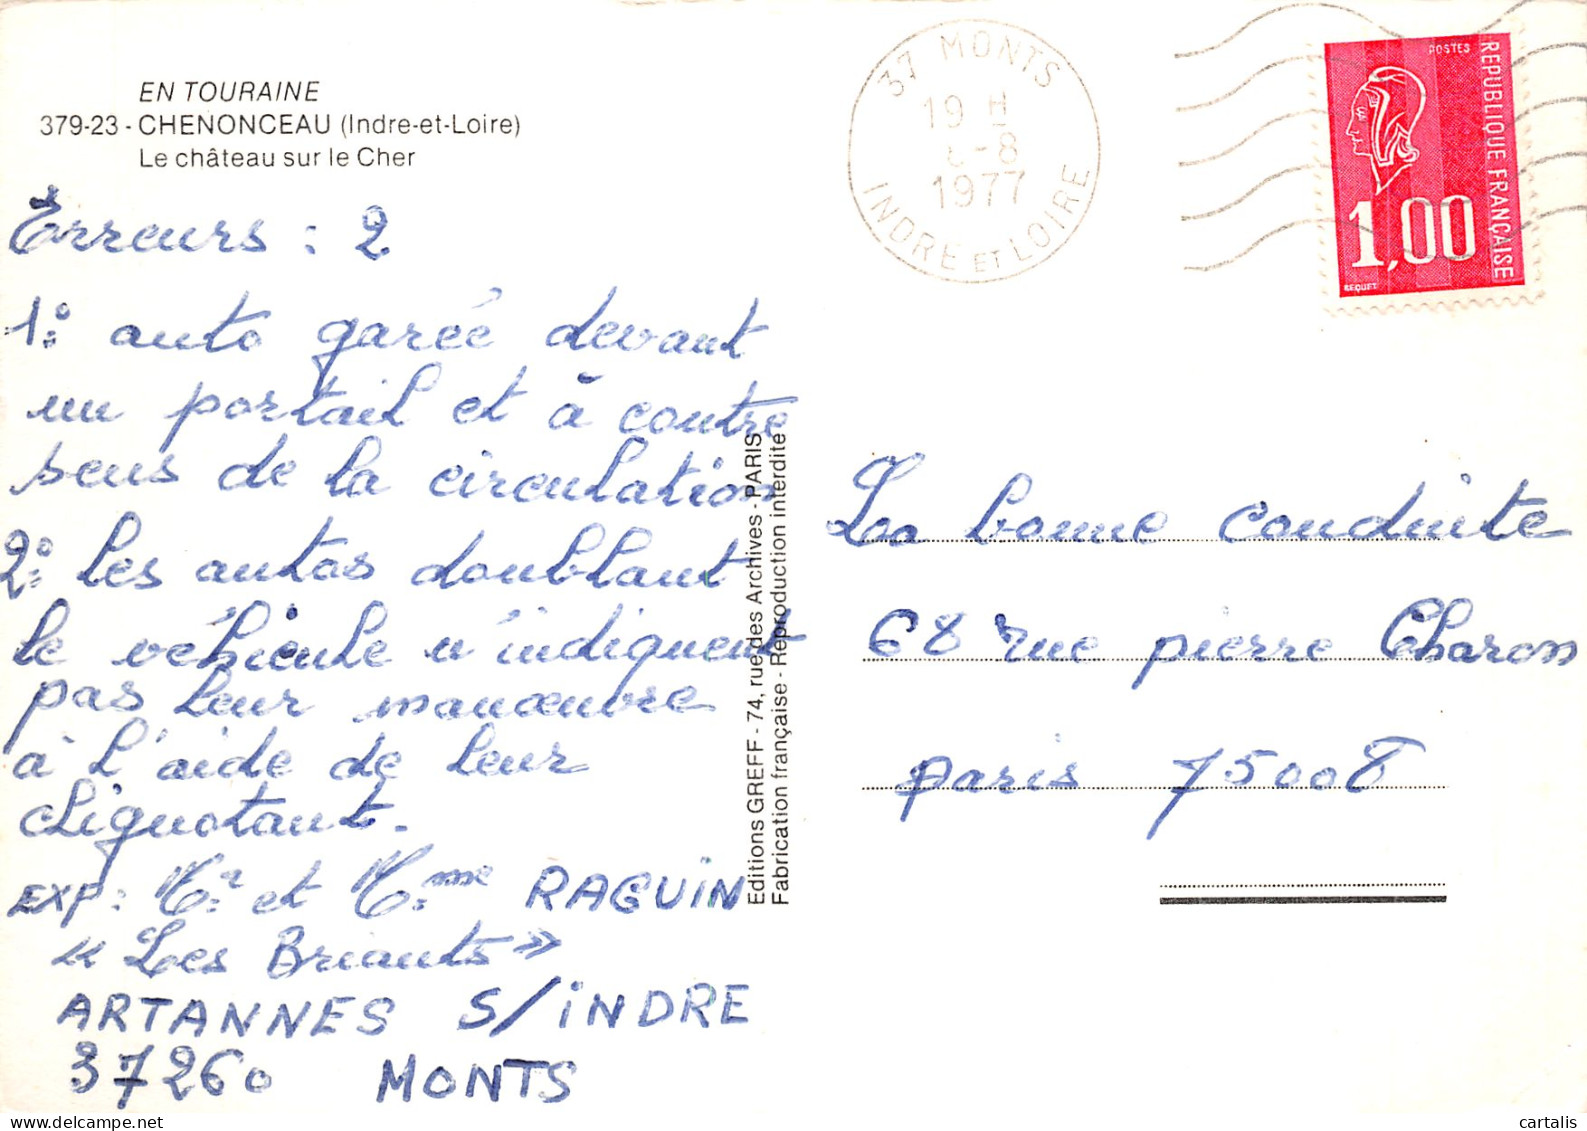 EN TOURAINE
379-23 - CHENONCEAU (Indre-et-Loire)
Le château sur le Cher
Erreurs : 2
1° auto garée devant
un portail et à contre
sens de la circulation
2° les autos doublant
le véhicule n'indiquent
pas leur manœuvre
à l'aide de leur
clignotant.
EXP: Mr et Mme RAGUIN
« Les Briants »
ARTANNES S/INDRE
37260 MONTS
Editions GREFF - 74, rue des Archives - PARIS
Fabrication française - Reproduction interdite
37 MONTS
19 H
-8
1977
INDRE ET LOIRE
POSTES
REPUBLIQUE FRANÇAISE
1,00
BEQUET
La bonne conduite
68 rue pierre Charon
paris 75008
cartalis